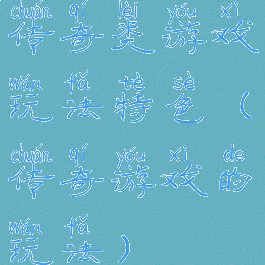 chuán qí lèi yóu xì
传奇类游戏
wán fǎ tè sè
玩法特色(
chuán qí yóu xì de
传奇游戏的
wán fǎ
玩法)